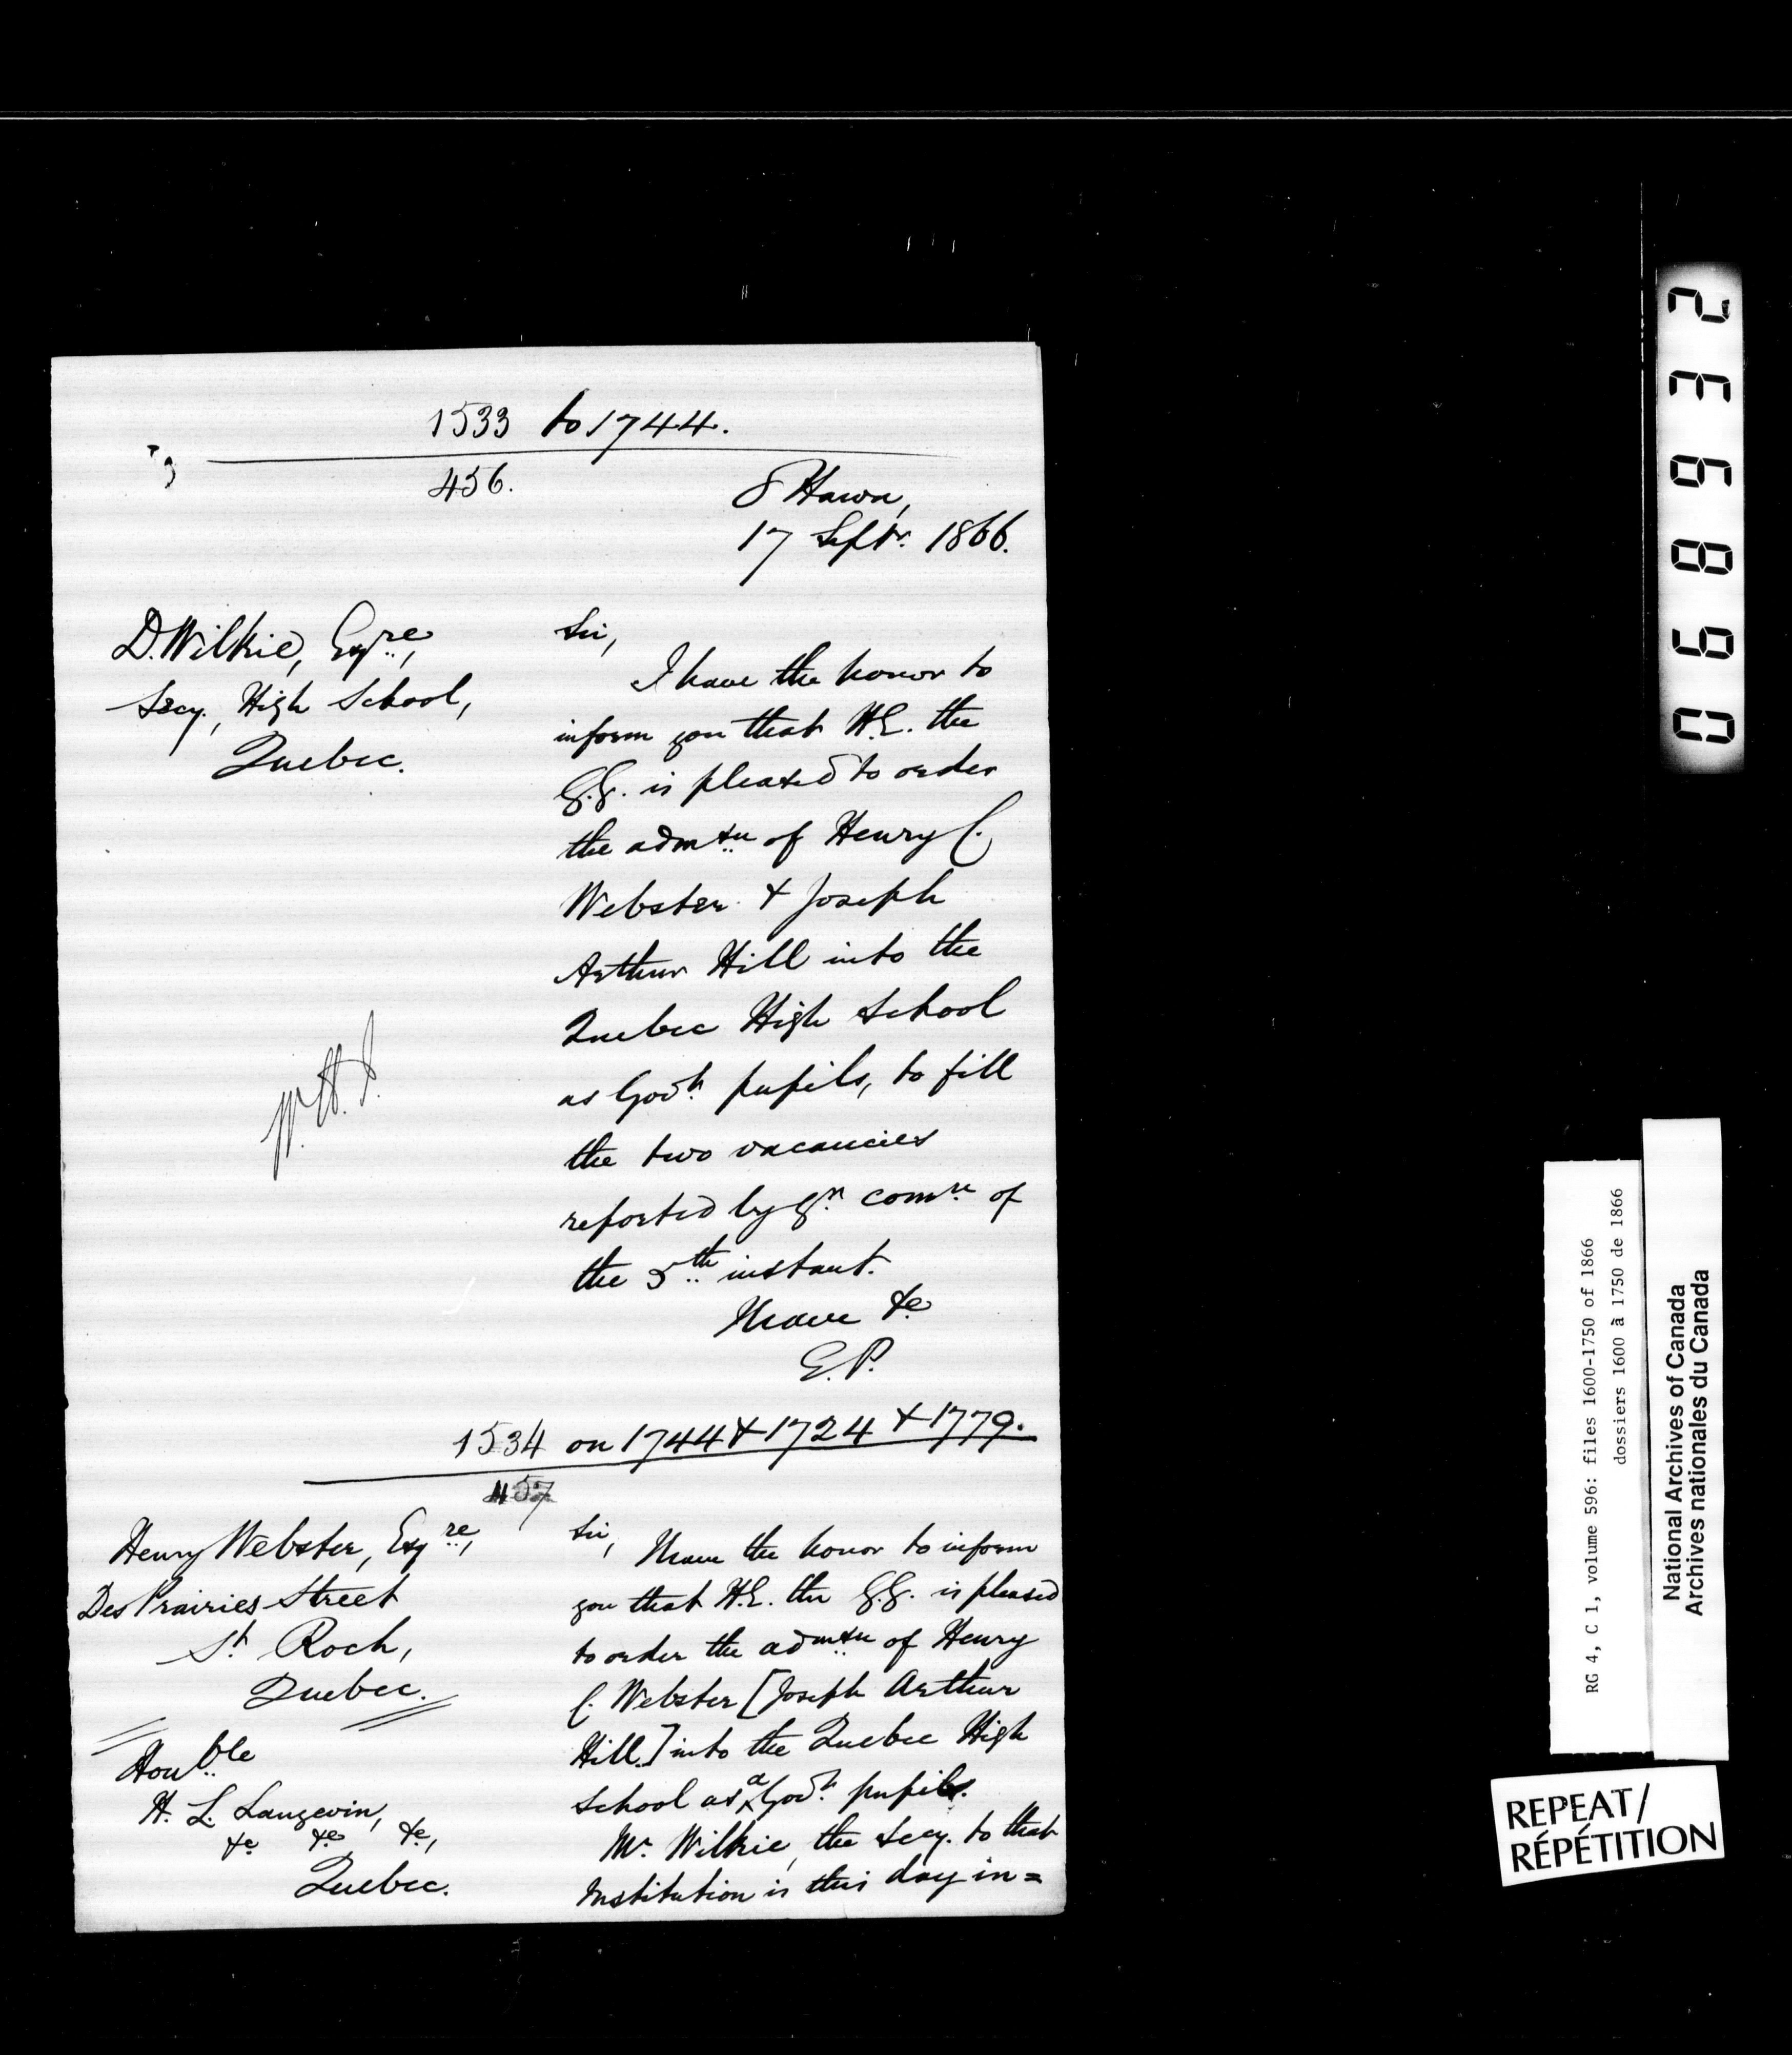 1533 to 1744.
456.
Ottawa,
17 Septr. 1866.
D. Wilkie, Esqre,
Secy., High School,
Quebec.
Sir,
I have the honor to
inform you that H.E. the
G.G. is pleased to order
the admson of Henry C.
Webster & Joseph
Arthur Hill into the
Quebec High School
as Govt. pupils, to fill
the two vacancies
reported by yr. comn. of
the 5th instant.
I have &c
E.P.
1534 on 1744 & 1724 & 1779.
457
Henry Webster, Esqre,
Des Prairies Street
St. Roch,
Quebec.
Honble
H. L. Langevin,
&c &c &c,
Quebec.
Sir,
I have the honor to inform
you that H.E. the G.G. is pleased
to order the admson of Henry
C. Webster [Joseph Arthur
Hill] into the Quebec High
School as a Govt. pupil.
Mr. Wilkie, the Secy. to that
Institution is this day in=
069632
RG 4, C 1, volume 596: files 1600-1750 of 1866
dossiers 1600 à 1750 de 1866
National Archives of Canada
Archives nationales du Canada
REPEAT/
RÉPÉTITION